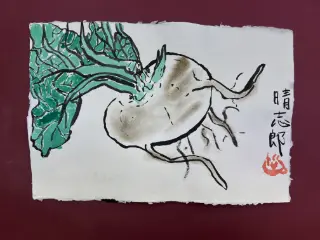 晴志郎